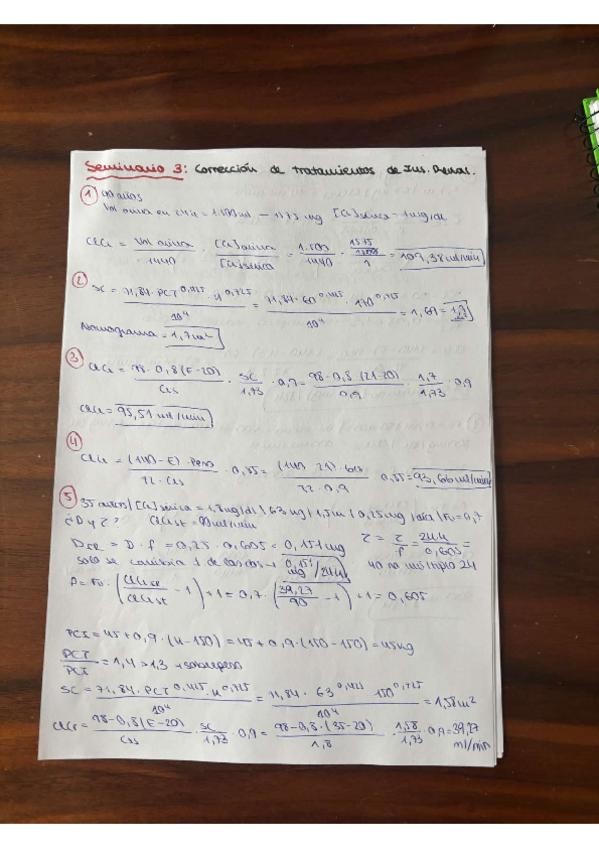 Seminario 3: Corrección de tratamientos de Ins. Renal.
① años
Vol orina en = 1.500 ml – 1575 mg [Cr]sérica = 1 mg/dL
ClCr = Vol orina / 1440 · [Cr]orina / [Cr]sérica = 1.500 / 1440 · 1575 / 1500 / 1 = 109,38 ml/min
② SC = 71,84 · PCT^0,425 · H^0,725 / 10⁴ = 71,84 · 60^0,425 · 170^0,725 / 10⁴ = 1,69 = 1,7
Nomograma = 1,7 m²
③ ClCr = 98 - 0,8 (E-20) / Crs · SC / 1,73 · 0,9 = 98 - 0,8 (21-20) / 0,9 · 1,7 / 1,73 · 0,9
ClCr = 95,51 ml/min
④
ClCr = (140 - E) · Peso / 72 · Crs · 0,85 = (140 - 21) · 60 / 72 · 0,9 · 0,85 = 93,66 ml/min
⑤ 35 años / [Cr] sérica = 1,8 mg/dl / 63 kg / 1,5 m / 0,25 mg / día / Fr = 0,7
¿D y τ? ClCr st = 90 ml/min
D_IR = D · f = 0,25 · 0,605 = 0,151 mg τ = τ / f = 24h / 0,605 =
solo se cambia 1 de las dos → 0,151 mg / 24h 40 no múltiplo 24
f = Fr · (ClCr IR / ClCr st - 1) + 1 = 0,7 · (39,27 / 90 - 1) + 1 = 0,605
PCI = 45 + 0,9 · (H - 150) = 45 + 0,9 · (150 - 150) = 45 kg
PCT / PCI = 1,4 > 1,3 → sobrepeso
SC = 71,84 · PCT^0,425 · H^0,725 / 10⁴ = 71,84 · 63^0,425 · 150^0,725 / 10⁴ = 1,58 m²
ClCr = 98 - 0,8 (E-20) / Crs · SC / 1,73 · 0,9 = 98 - 0,8 · (35-20) / 1,8 · 1,58 / 1,73 · 0,9 = 39,27 ml/min